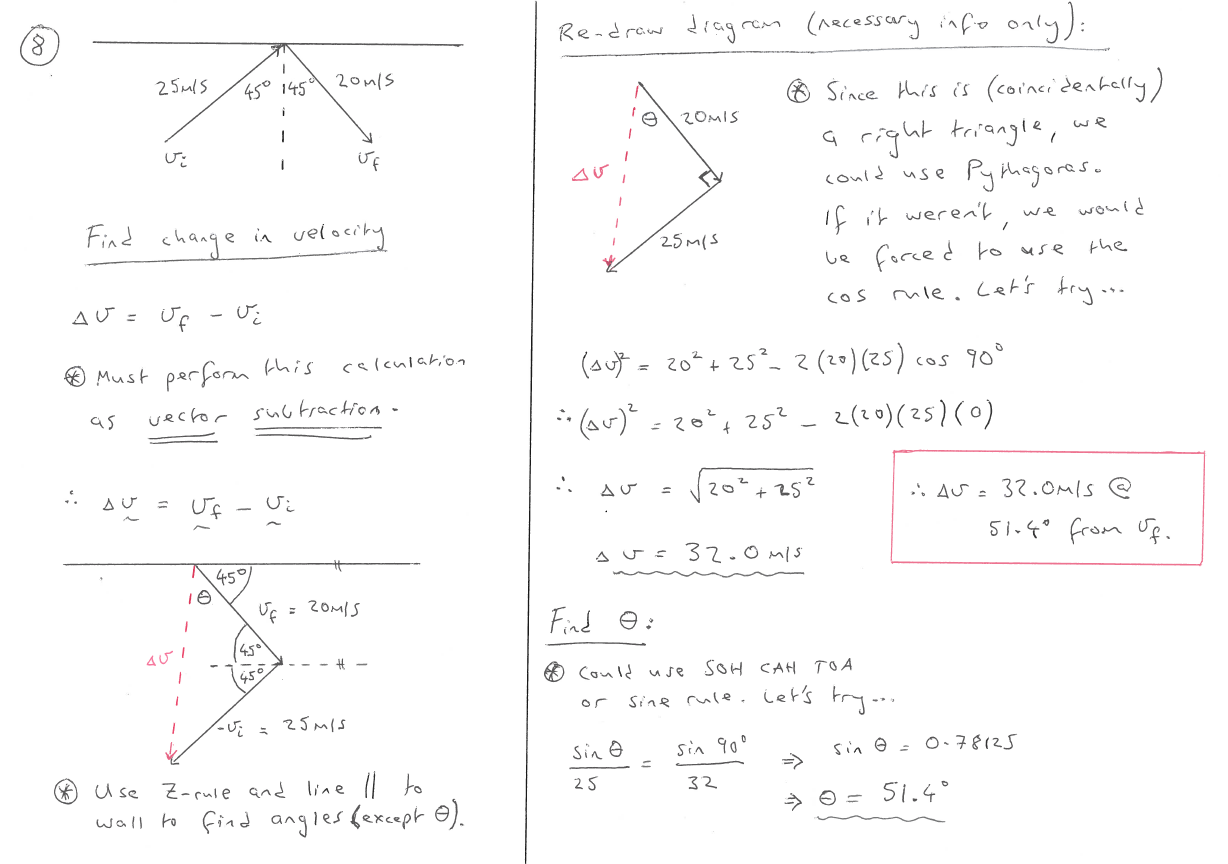 8
25m/s 45° 45° 20m/s
v_i v_f
Find change in velocity
Δv = v_f - v_i
⊛ Must perform this calculation
as vector subtraction.
∴ Δv = v_f - v_i
45°
θ
v_f = 20m/s
Δv
45°
45°
-v_i = 25m/s
⊛ Use Z-rule and line || to
wall to find angles (except θ).
Re-draw diagram (necessary info only):
θ 20m/s
Δv
25m/s
⊛ Since this is (coincidentally)
a right triangle, we
could use Pythagoras.
If it weren't, we would
be forced to use the
cos rule. Let's try...
(Δv)² = 20² + 25² - 2(20)(25) cos 90°
∴ (Δv)² = 20² + 25² - 2(20)(25)(0)
∴ Δv = √(20² + 25²)
Δv = 32.0 m/s
∴ Δv = 32.0m/s @
51.4° from v_f.
Find θ:
⊛ Could use SOH CAH TOA
or sine rule. Let's try...
sin θ / 25 = sin 90° / 32 ⇒ sin θ = 0.78125
⇒ θ = 51.4°